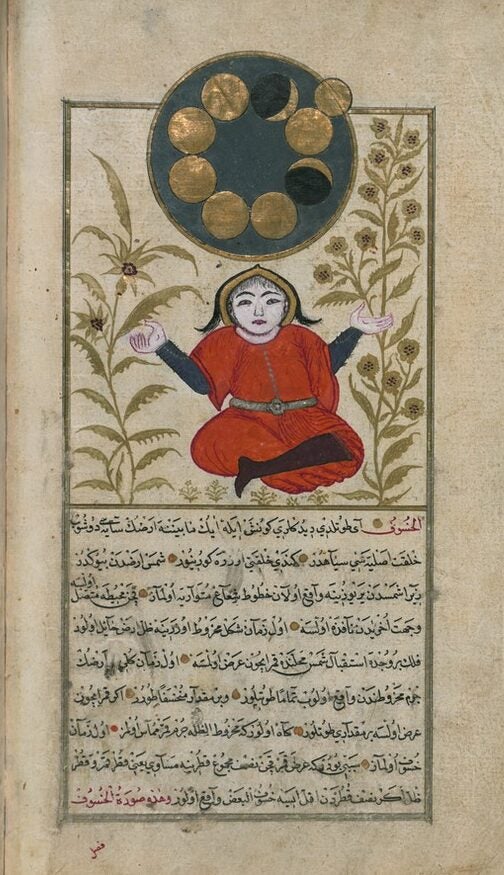 الخسوف آي طوتلدي ديدكلري كونش ايله ايك مابيننه ارضك سايه سي دوشوب
خلقت اصليه سي سياهدر كندي خلقتي اوزره كورينور شمس ارضدن بيوكدر
زيرا شمسدن يريوزينه واقع اولان خطوط شعاع متوازيه اولماز محيطه متصل اوليه
وجهت اخريدن نافذه اولسه اول زمان شكل مخروط اوزرينه ظل ارض حايل اولور
فلك بروجده استقبال شمس محلنده قمر ايچون عرض اولسه اول زمان كلي ارضك
جرم مخروطندن واقع اولوب تماما طوتيلور وبر مقدار منخسفا طورر اكر قمر ايچون
عرض اولسه بر مقداري طوتلور كاه اولور كه مخروط الظله جرم قمر مماس اولور اول زمان
خسوف اولماز سببي بودر كه عرض قمر نصف مجموع قطرينه مساوي يعني قطر قمر و قطر
ظل اكر نصف قطردن اقل ايسه خسوف البعض واقع اولور وهذه صورة الخسوف
فصل